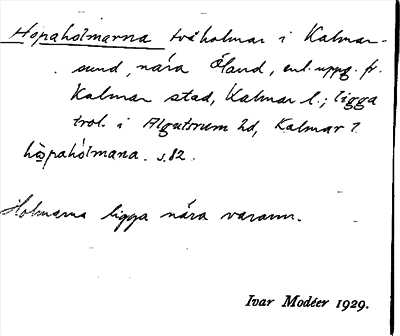 Hopaholmarna två holmar i Kalmar-
sund, nära Öland, enl. uppg. fr.
Kalmar stad, Kalmar l.; ligga
trol. i Algutsrum hd, Kalmar l.
hòpahólmana. s. 82.
Holmarna ligga nära varann.
Ivar Modéer 1929.